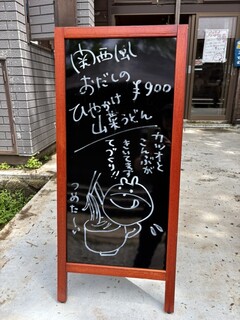 関西風
おだしの
¥900
ひやかけ
山菜うどん
カツオと
こんぶが
きいてます
てづくり!!
つめた〜い